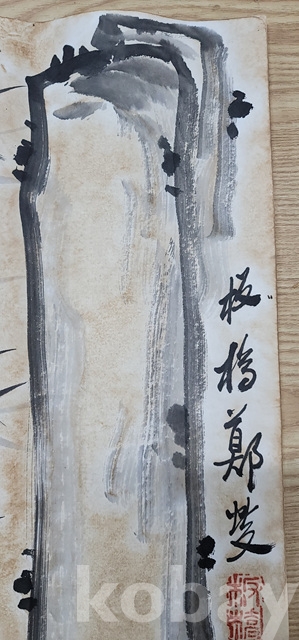 板橋鄭燮
板橋
kobay